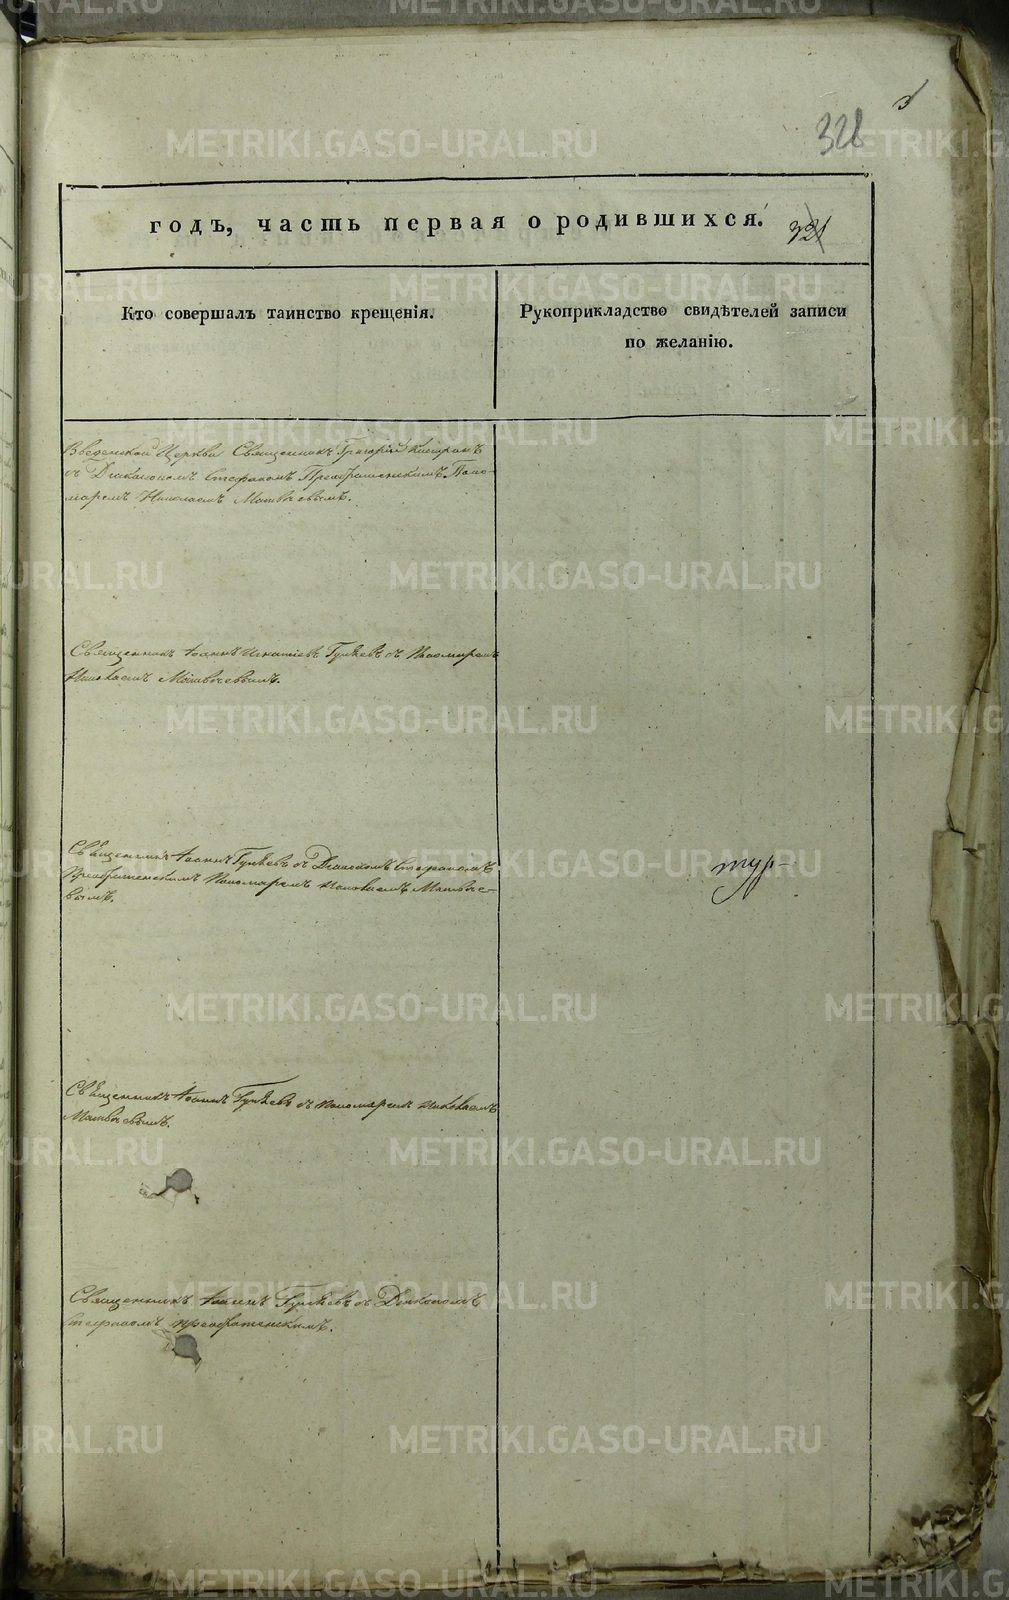 3
328
годъ, часть первая о родившихся.
321
Кто совершалъ таинство крещенія.
Рукоприкладство свидѣтелей записи
по желанію.
Введенской Церкви Священникъ Григорій
съ Діакономъ Стефаномъ Преображенскимъ Поно-
маремъ Николаемъ Матвѣевымъ.
Священникъ Іоаннъ Игнатіевъ Гуляевъ съ Пономаремъ
Николаемъ Матвѣевымъ.
Священникъ Іоаннъ Гуляевъ съ Діакономъ Стефаномъ
Преображенскимъ Пономаремъ Николаемъ Матвѣе-
вымъ.
тур-
Священникъ Іоаннъ Гуляевъ съ Пономаремъ Николаемъ
Матвѣевымъ.
Священникъ Іоаннъ Гуляевъ съ Діакономъ
Стефаномъ Преображенскимъ.
METRIKI.GASO-URAL.RU